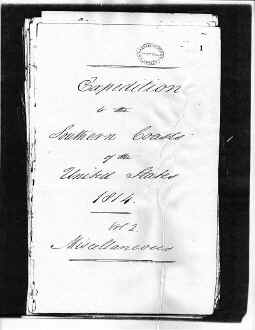 1
Expedition
to the
Southern Coasts
of the
United States
1814.
Vol 2.
Miscellaneous